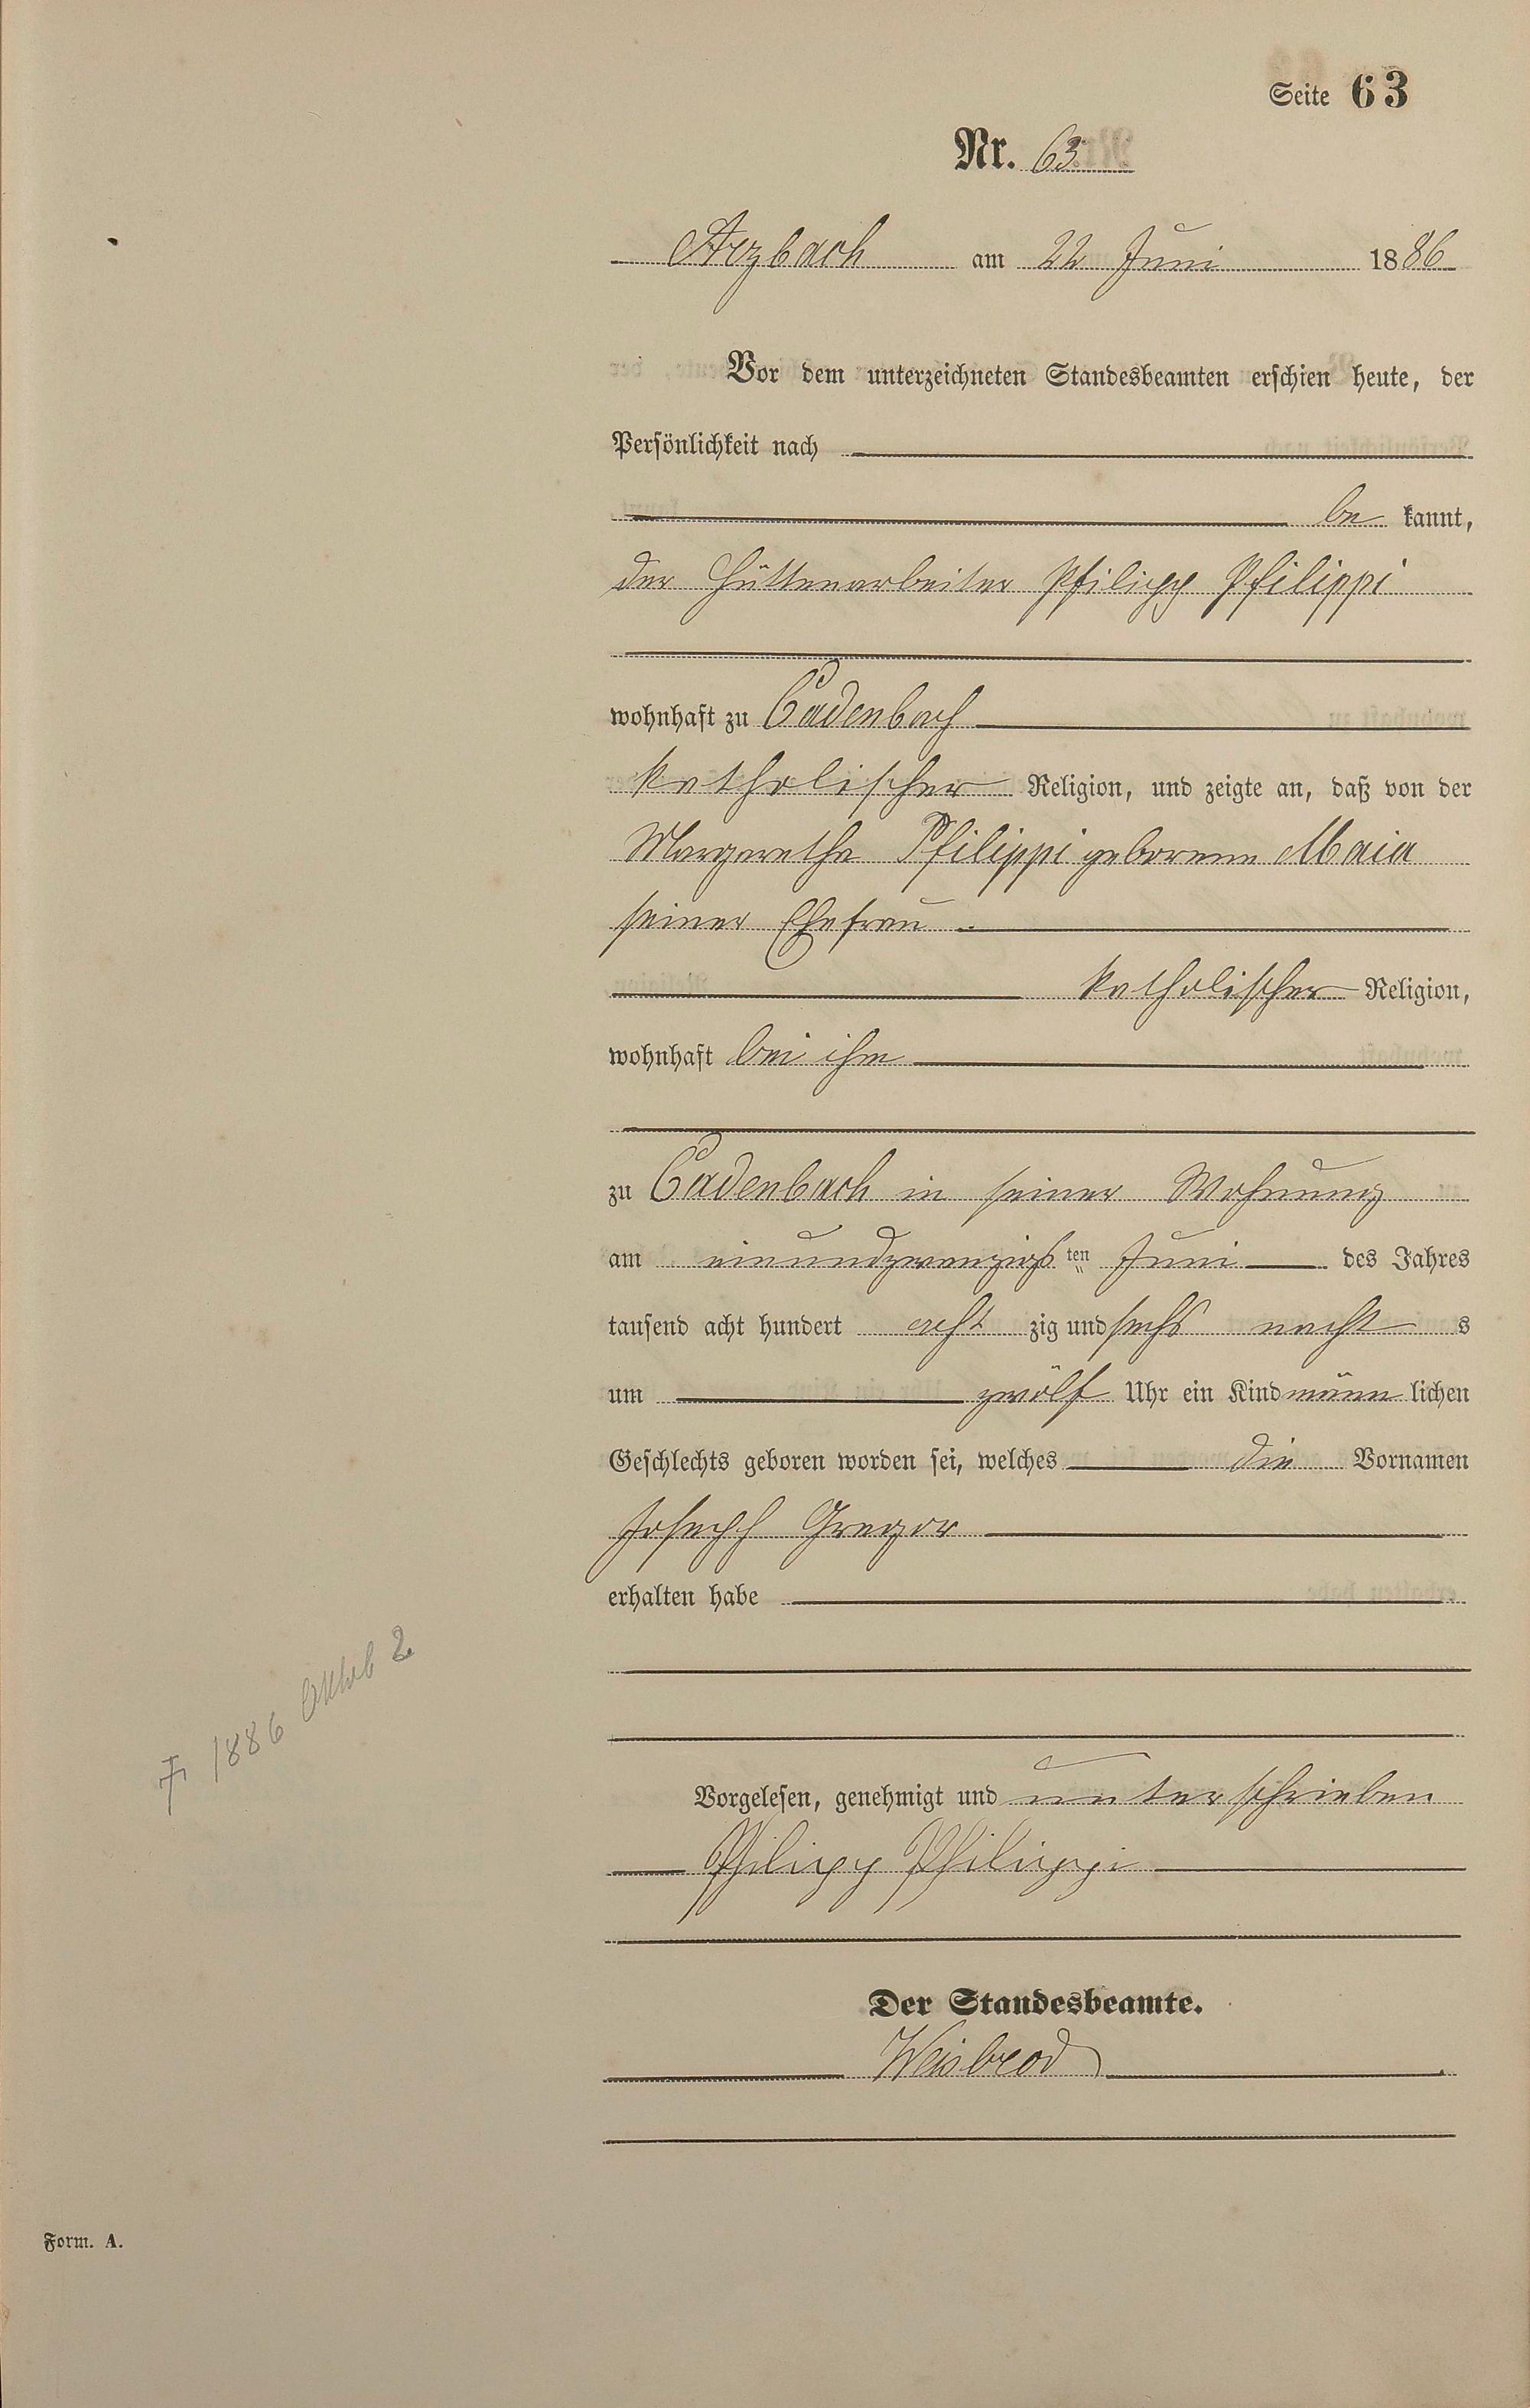 Seite 63
Nr. 63
Arzbach am 22 Juni 1886
Vor dem unterzeichneten Standesbeamten erschien heute, der
Persönlichkeit nach
be kannt,
der Hüttenarbeiter Philipp Philippi
wohnhaft zu Cadenbach
katholischer Religion, und zeigte an, daß von der
Margaretha Philippi geborene Maia
seiner Ehefrau
katholischer Religion,
wohnhaft bei ihm
zu Cadenbach in seiner Wohnung
am einundzwanzigsten Juni des Jahres
tausend acht hundert acht zig und sechs nacht s
um zwölf Uhr ein Kind männ lichen
Geschlechts geboren worden sei, welches die Vornamen
Joseph Gregor
erhalten habe
† 1886 Oktob 2
Vorgelesen, genehmigt und unterschrieben
Philipp Philippi
Der Standesbeamte.
Weisbrod
Form. A.